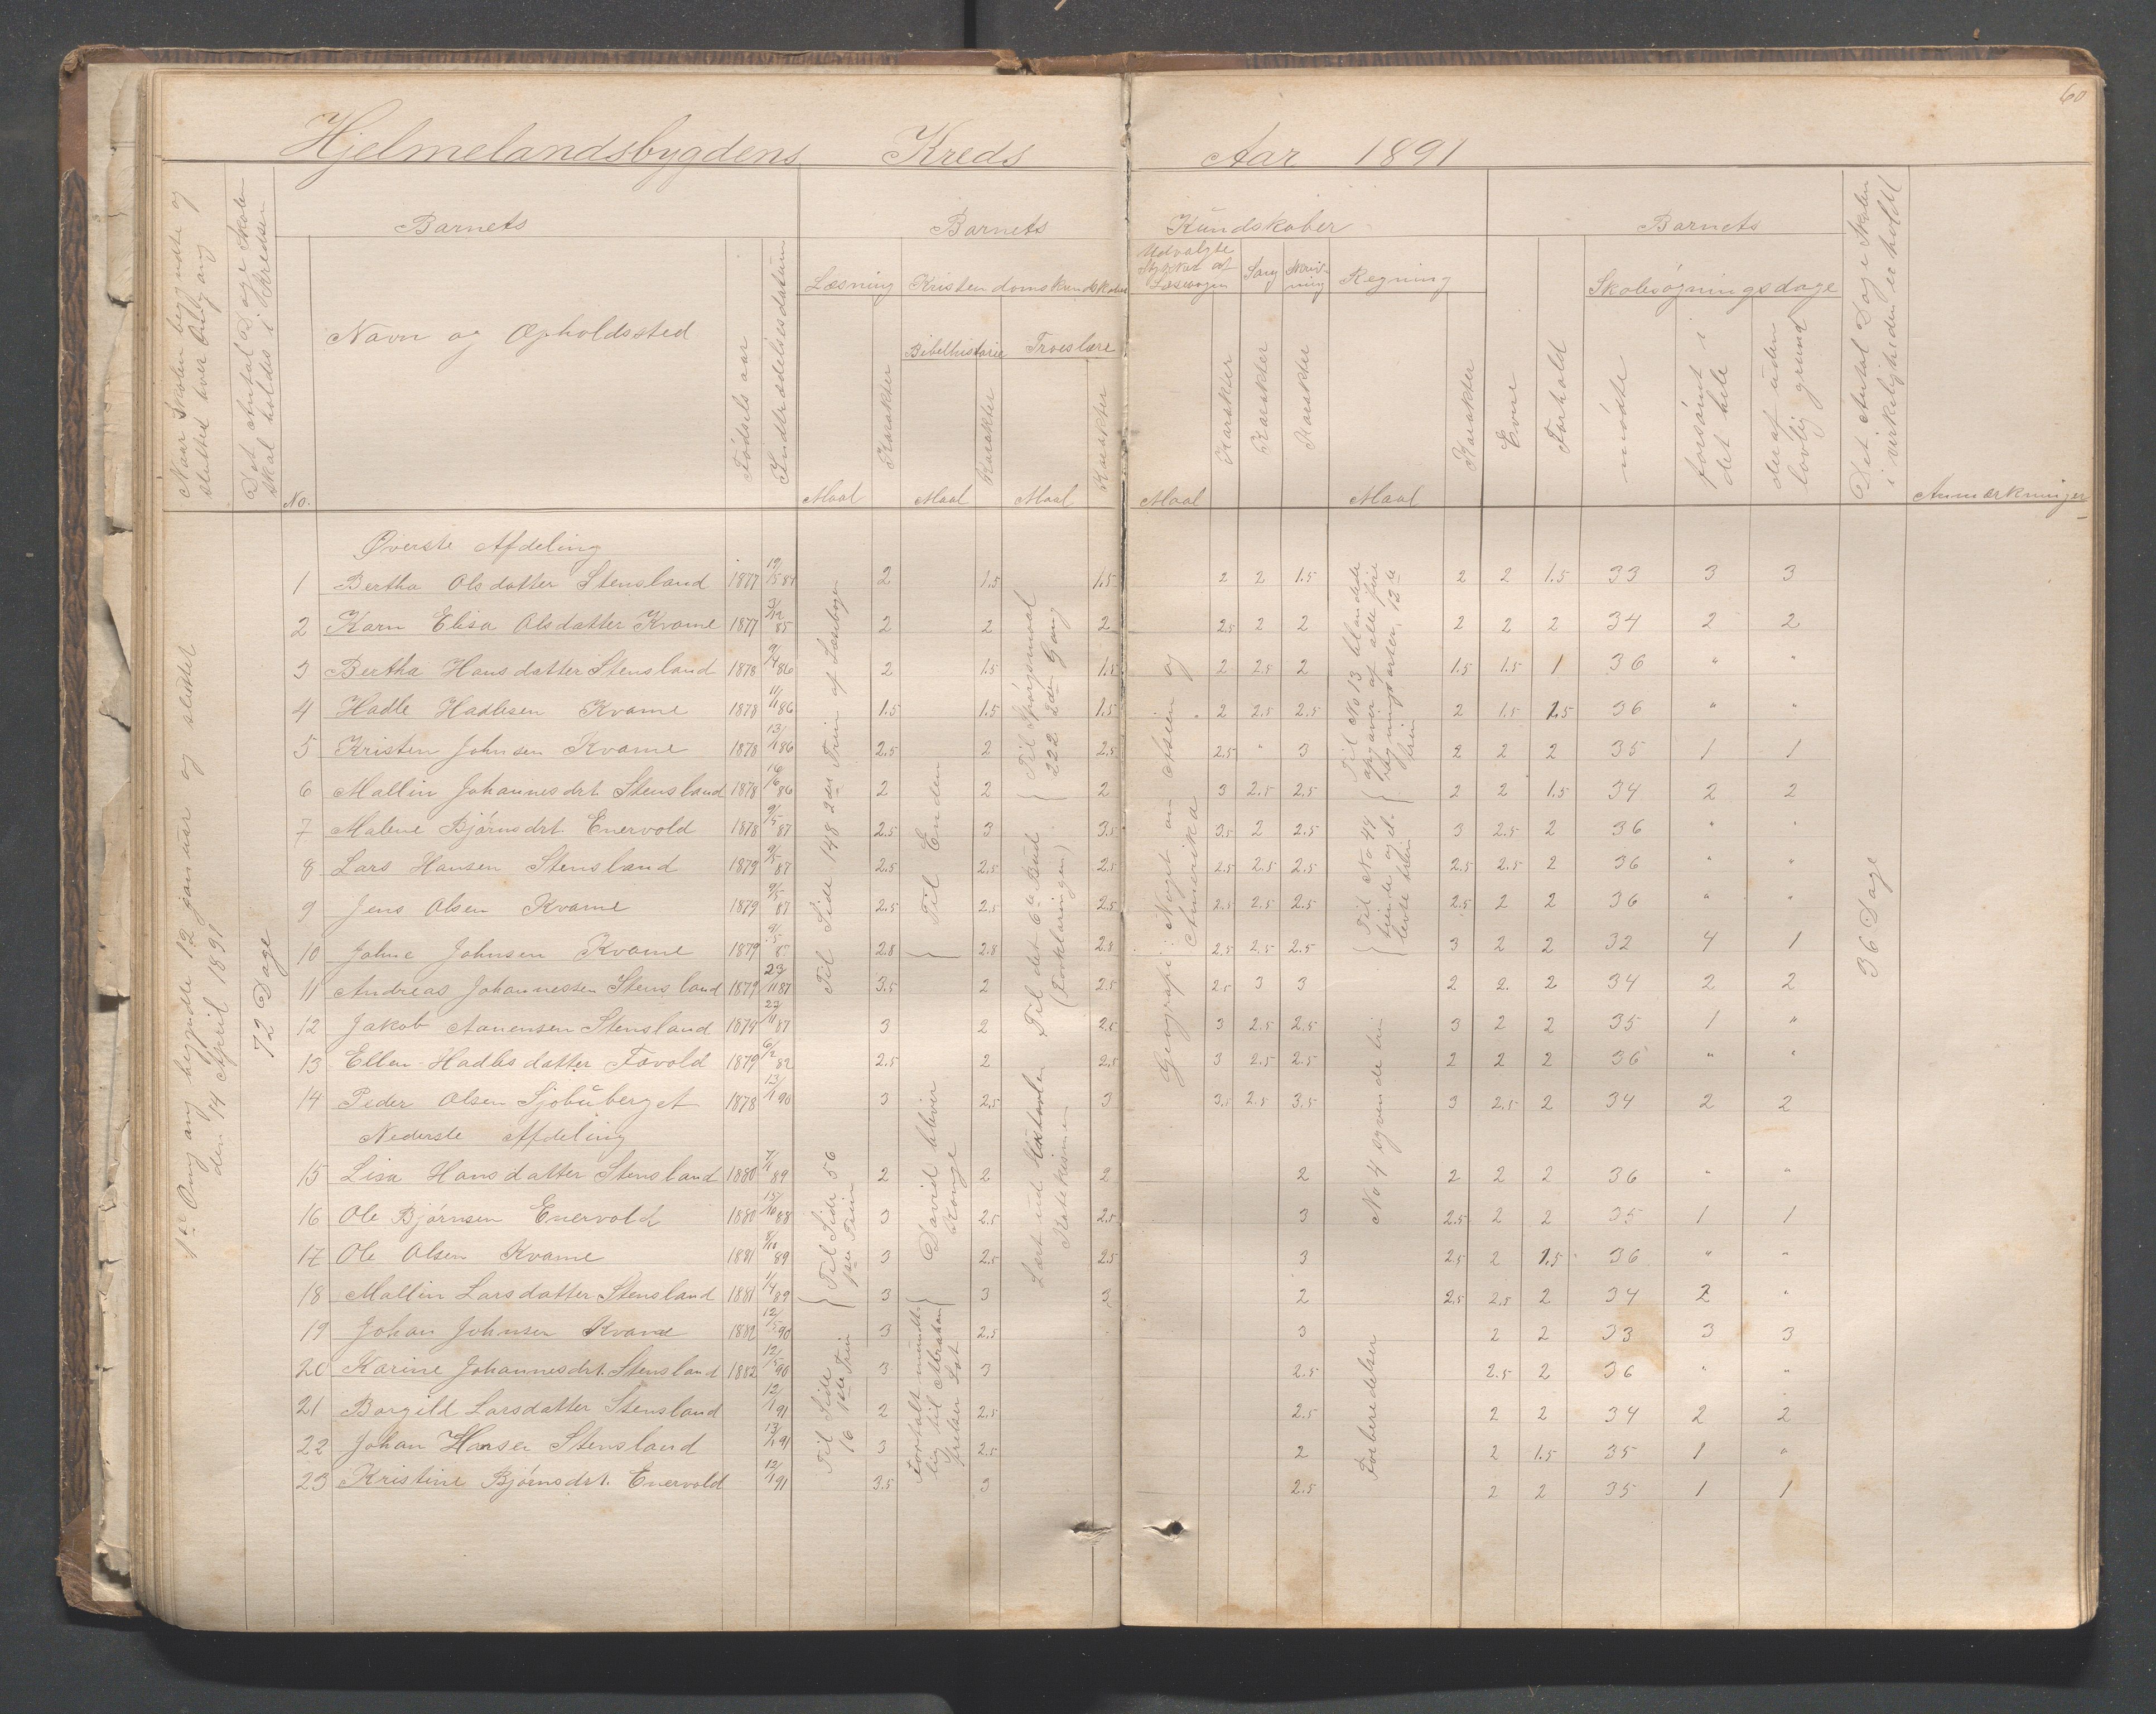 60
Hjelmelandsbygdens Kreds Aar 1891
Naar Skolen begyndte og
sluttet hver Omgang
Det Antal Dage Skolen
skal holdes i Kredsen
Barnets
No.
Navn og Opholdssted
Fødsels aar
Indtrædelsesdatum
Barnets Kundskaber
Læsning
Maal
Karakter
Kristendomskundskaber
Bibelhistorie
Maal
Karakter
Troeslære
Maal
Karakter
Udvalgte
Stykker af
Læsebogen
Maal
Karakter
Sang
Karakter
Skriv-
ning
Karakter
Regning
Maal
Karakter
Barnets
Evne
Forhold
Skolesøgningsdage
mødte
forsømt i
det hele
deraf uden
lovlig grund
Det Antal Dage Skolen
i virkeligheden er holdt
Anmærkninger
1ste Omgang begyndte 12 januar og sluttet
den 14 April 1891
72 Dage
Øverste Afdeling
1 Bertha Olsdatter Stensland 1877 2 1.5 1.5 2 2 1.5 2 2 1.5 33 3 3
2 Karn Elisa Olsdatter Kvame 1877 3/12 85 2 2 2 2.5 2 2 2 2 2 34 2 2
3 Bertha Hansdatter Stensland 1878 9/4 86 2 1.5 1.5 2 2.5 2 1.5 1.5 1 36 " "
4 Hadle Hadlesen Kvame 1878 11/11 86 1.5 1.5 1.5 2 2.5 2.5 2 1.5 1.5 36 " "
5 Kristen Johnsen Kvame 1878 13/11 86 2.5 2 2.5 2.5 " 3 2 2 2 35 1 1
6 Mallin Johannesdrt Stensland 1878 16/6 86 2 2 2 3 2.5 2.5 2 2 1.5 34 2 2
7 Malene Bjørnsdrt. Enervold 1878 9/5 87 2.5 3 3.5 3.5 2 2.5 3 2.5 2 36 " "
8 Lars Hansen Stensland 1879 9/5 87 2.5 2.5 2.5 2.5 2.5 2.5 2.5 2.5 2 36 " "
9 Jens Olsen Kvame 1879 9/5 87 2.5 2.5 2.5 2.5 2.5 2.5 2.5 2 2 36 " "
10 Johne Johnsen Kvame 1879 9/5 8 2.8 2.8 2.8 2.5 2.5 2.5 3 2 2 32 4 1
11 Andreas Johannessen Stensland 1879 23/11 87 3.5 2 2.5 2.5 3 3 2 2. 2 34 2 2
12 Jakob Aanensen Stensland 1879 22/11 87 3 2 2.5 3 2.5 2.5 3 2 2 35 1 "
13 Ellen Hadlesdatter Favold 1879 6/2 82 2.5 2 2.5 3 2.5 2.5 2 2 2 36 " "
14 Peder Olsen Sjobuberget 1878 13/1 90 3 2.5 3 3.5 2.5 3.5 3 2.5 2 34 2 2
Nederste Afdeling
15 Lisa Hansdatter Stensland 1880 7/1 89 2 2 2 2 2 2 2 36 " "
16 Ole Bjørnsen Enervold 1880 15/10 88 3 2.5 2.5 3 2.5 2 2 35 1 1
17 Ole Olsen Kvame 1881 8/10 89 3 2.5 2.5 3 2.5 2 1.5 36 " "
18 Mallin Larsdatter Stensland 1881 1/4 89 3 3 3 2 2.5 2.5 2 34 2 "
19 Johan Johnsen Kvame 1882 12/5 90 3 2.5 3 2 2 33 3 3
20 Karine Johannesdrt. Stensland 1882 12/5 90 3 3 2.5 2.5 2 36 " "
21 Borgild Larsdatter Stensland 12/1 91 2 2.5 2.5 2 2 34 2 2
22 Johan Hansen Stensland 13/1 91 3 2.5 2 2 1.5 35 1 "
23 Kristine Bjørnsdrt. Enervold 12/1 91 3.5 3 2.5 2 2 35 1 1
Til Side 148 2den Trin af Læsebogen
Til Side 56
1ste Trin
Til Side
16 1ste Trin
Til Enden
David bliver
Konge
Fortalt mundt-
lig til Abraham
frelser Lot
Til Spørgsmaal
222 2den Gang
Til det 6te Bud
(Forklaringen)
Lært ud
Katekismen
Geografi: Noget om Asien og
Amerika
Til No 13 blandede
opgaver af alle fire
regningsarter, 13te
trin
Til No 44
tiende og el-
levte trin
No 4 syvende trin
Forberedelser
36 Dage